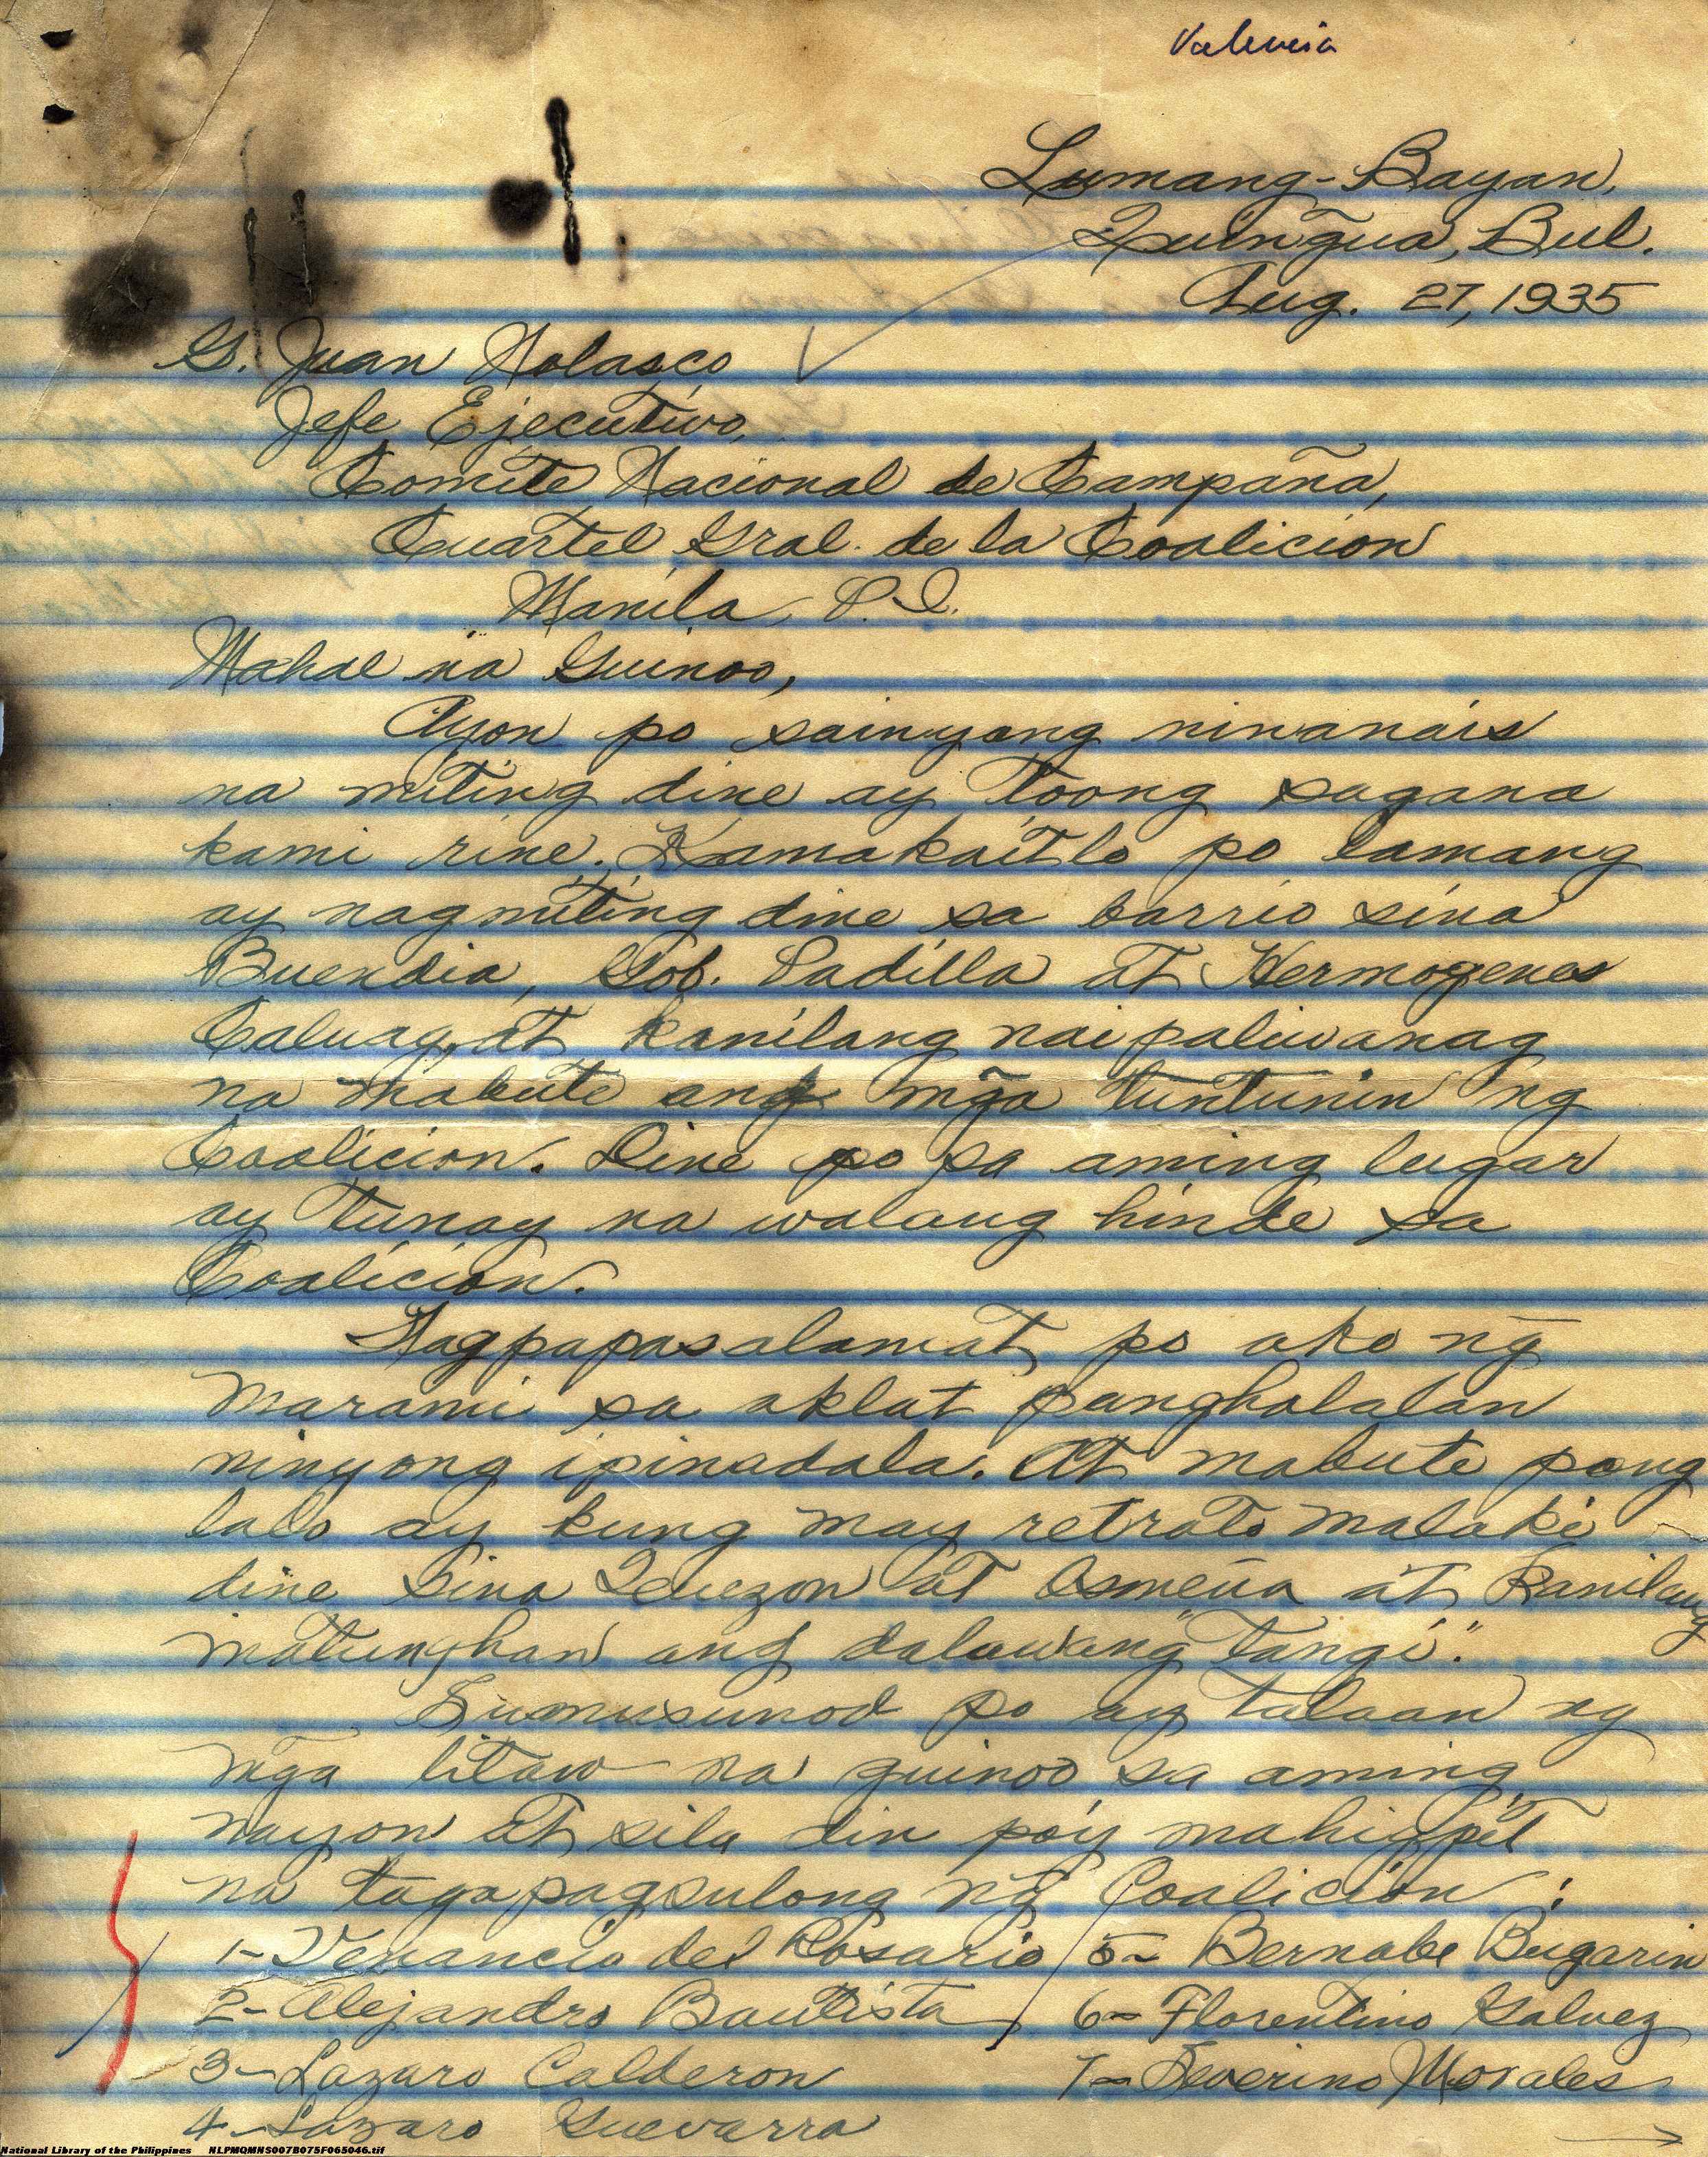 Valencia
Lumang-Bayan,
Quingua, Bul.
Aug. 27, 1935
G. Juan Nolasco
Jefe Ejecutivo,
Comite Nacional de Campaña,
Cuartel Gral. de la Coalicion
Manila, P.I.
Mahal na Guinoo,
Ayon po sainyong ninanáis
na miting dine ay toong sagana
kami rine. Kamakaitlo po lamang
ay nagmiting dine sa barrio sina
Buendia, Gob. Padilla at Hermogenes
Caluag, at kanilang naipaliwanag
na mabute ang mg̃a tuntunin ng
Coalicion. Dine po sa aming lugar
ay tunay na walang hinde sa
Coalicion.
Nagpapasalamat po ako ng̃
marami sa aklat panghalalan
ninyong ipinadala. At mabute pong
lalo ay kung may retrato malaki
dine sina Quezon at Osmeña at kanilang
matunghan ang dalawang "tangi".
Sumusunod po ay talaan ng
mg̃a litaw na guinoo sa aming
nayon at sila din poy mahigpit
na tagapagsulong ng̃ Coalicion :
1- Venancio del Rosario 5- Bernabe Bugarin
2- Alejandro Bautista 6- Florentino Galvez
3- Lazaro Calderon 7- Severino Morales
4- Lazaro Guevarra
National Library of the Philippines NLPMQMNS007B075F065046.tif